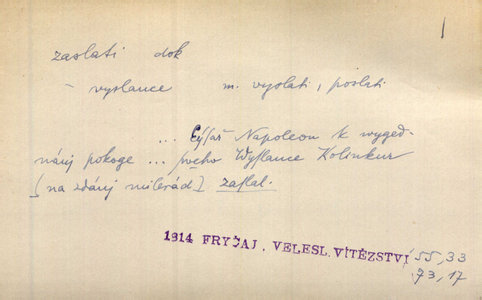 zaslati dok
~ vyslance m. vyslati, poslati
... Cýsař Napoleon k wyged-
nánj pokoge ... swého Wyslance Kolinkur
[na zdánj milerád] zaslal.
1814 FRYČAJ, VELESL. VÍTĚZSTVÍ 55, 33
73, 17